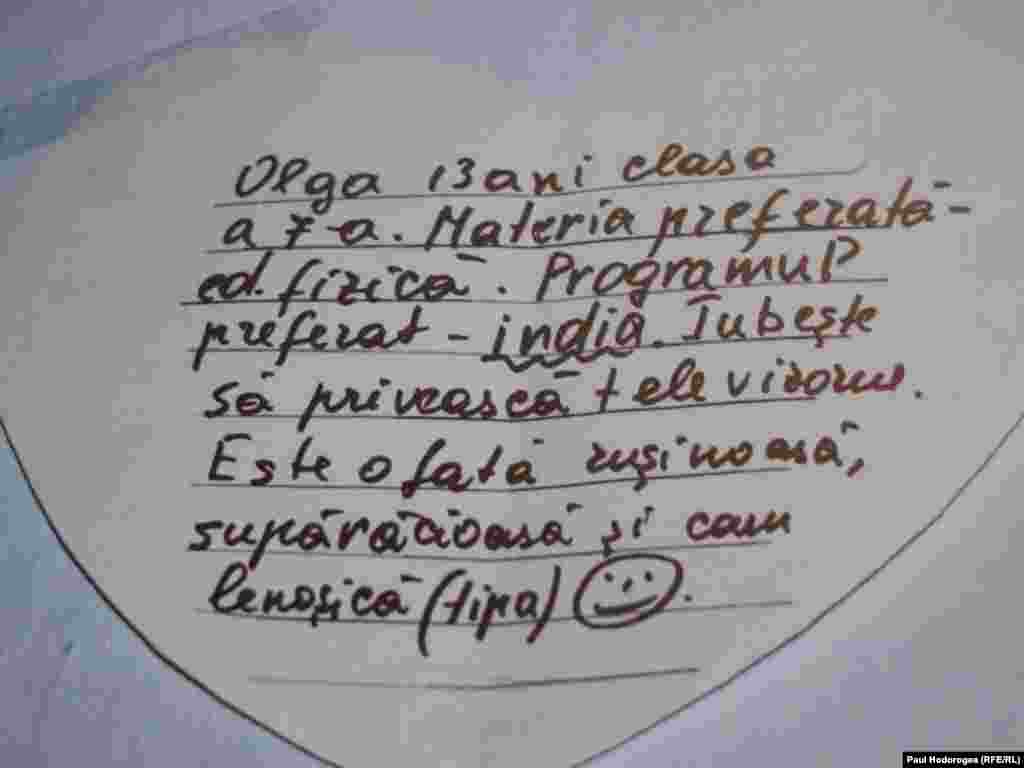 Olga 13 ani clasa
a 7-a. Materia preferată -
ed. fizică. Programul
preferat - india. Iubește
să privească televizorul.
Este o fată rușinoasă,
supărăcioasă și cam
lenoșică (tipa)
Paul Hodorogea (RFE/RL)